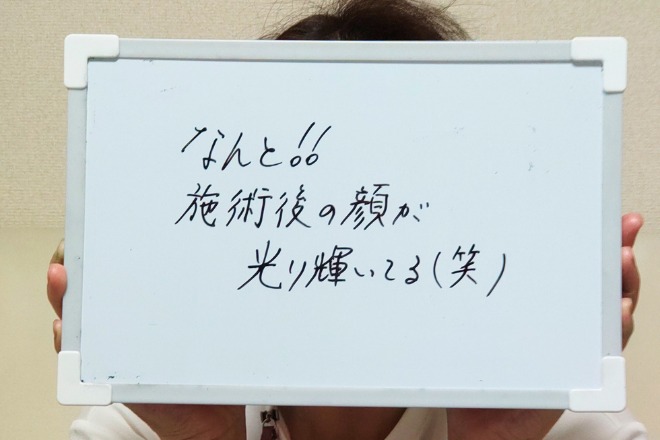 なんと!!
施術後の顔が
光り輝いてる(笑)